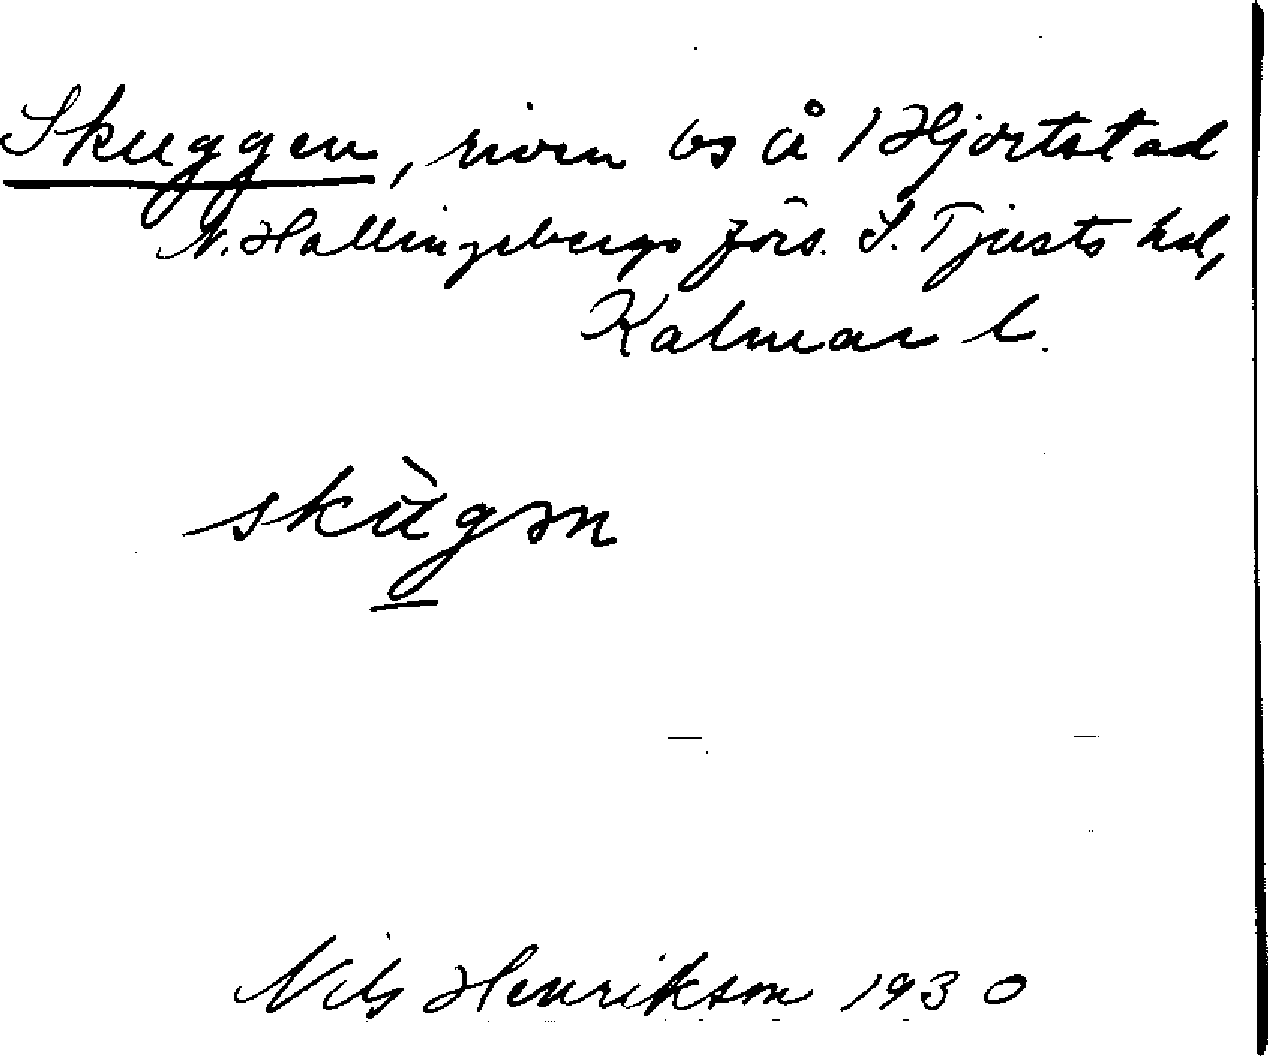 Skuggen, riven bs å 1 Hjortstad
N. Hallingebergs förs. S. Tjusts hd,
Kalmar l.
skùgən
Nils Henrikson 1930